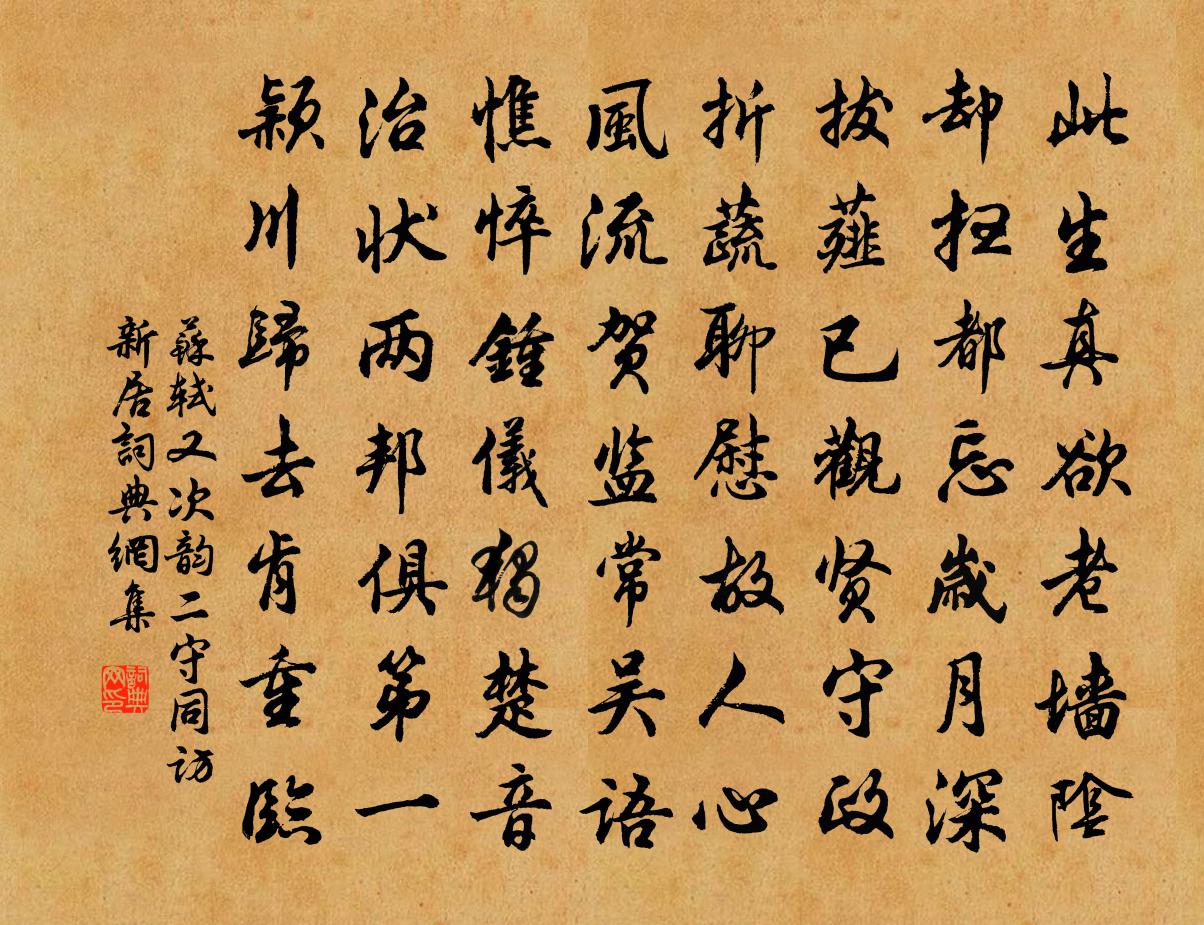 此生真欲老墙陰
却扫都忘歲月深
拔薤已觀贤守政
折蔬聊慰故人心
風流贺监常吴语
憔悴鍾儀独楚音
治状两邦俱第一
颍川歸去肯重臨
蘇轼又次韵二守同访
新居詞典網集
詞典网印